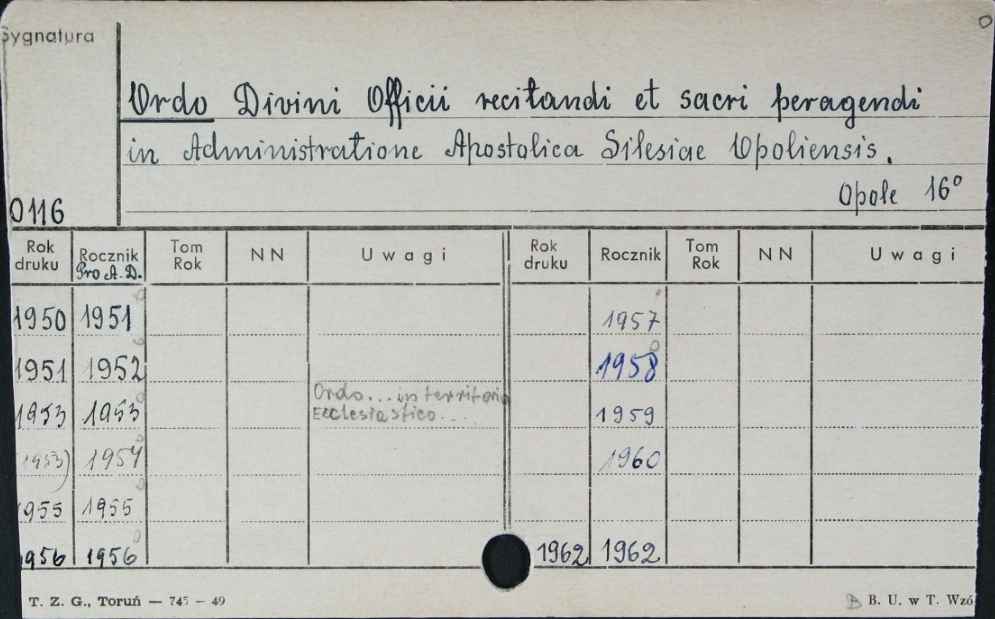 Sygnatura
Ordo Divini Officii recitandi et sacri peragendi
in Administratione Apostolica Silesiae Opoliensis.
Opole 16°
0116
Rok druku Rocznik Pro A. D. Tom Rok NN Uwagi Rok druku Rocznik Tom Rok NN Uwagi
1950 1951 1957
1951 1952 1958
1953 1953 Ordo... in territorio Ecclesiastico... 1959
(1953) 1954 1960
1955 1955
1956 1956 1962 1962
T. Z. G., Toruń — 745 — 49 B. U. w T. Wzó